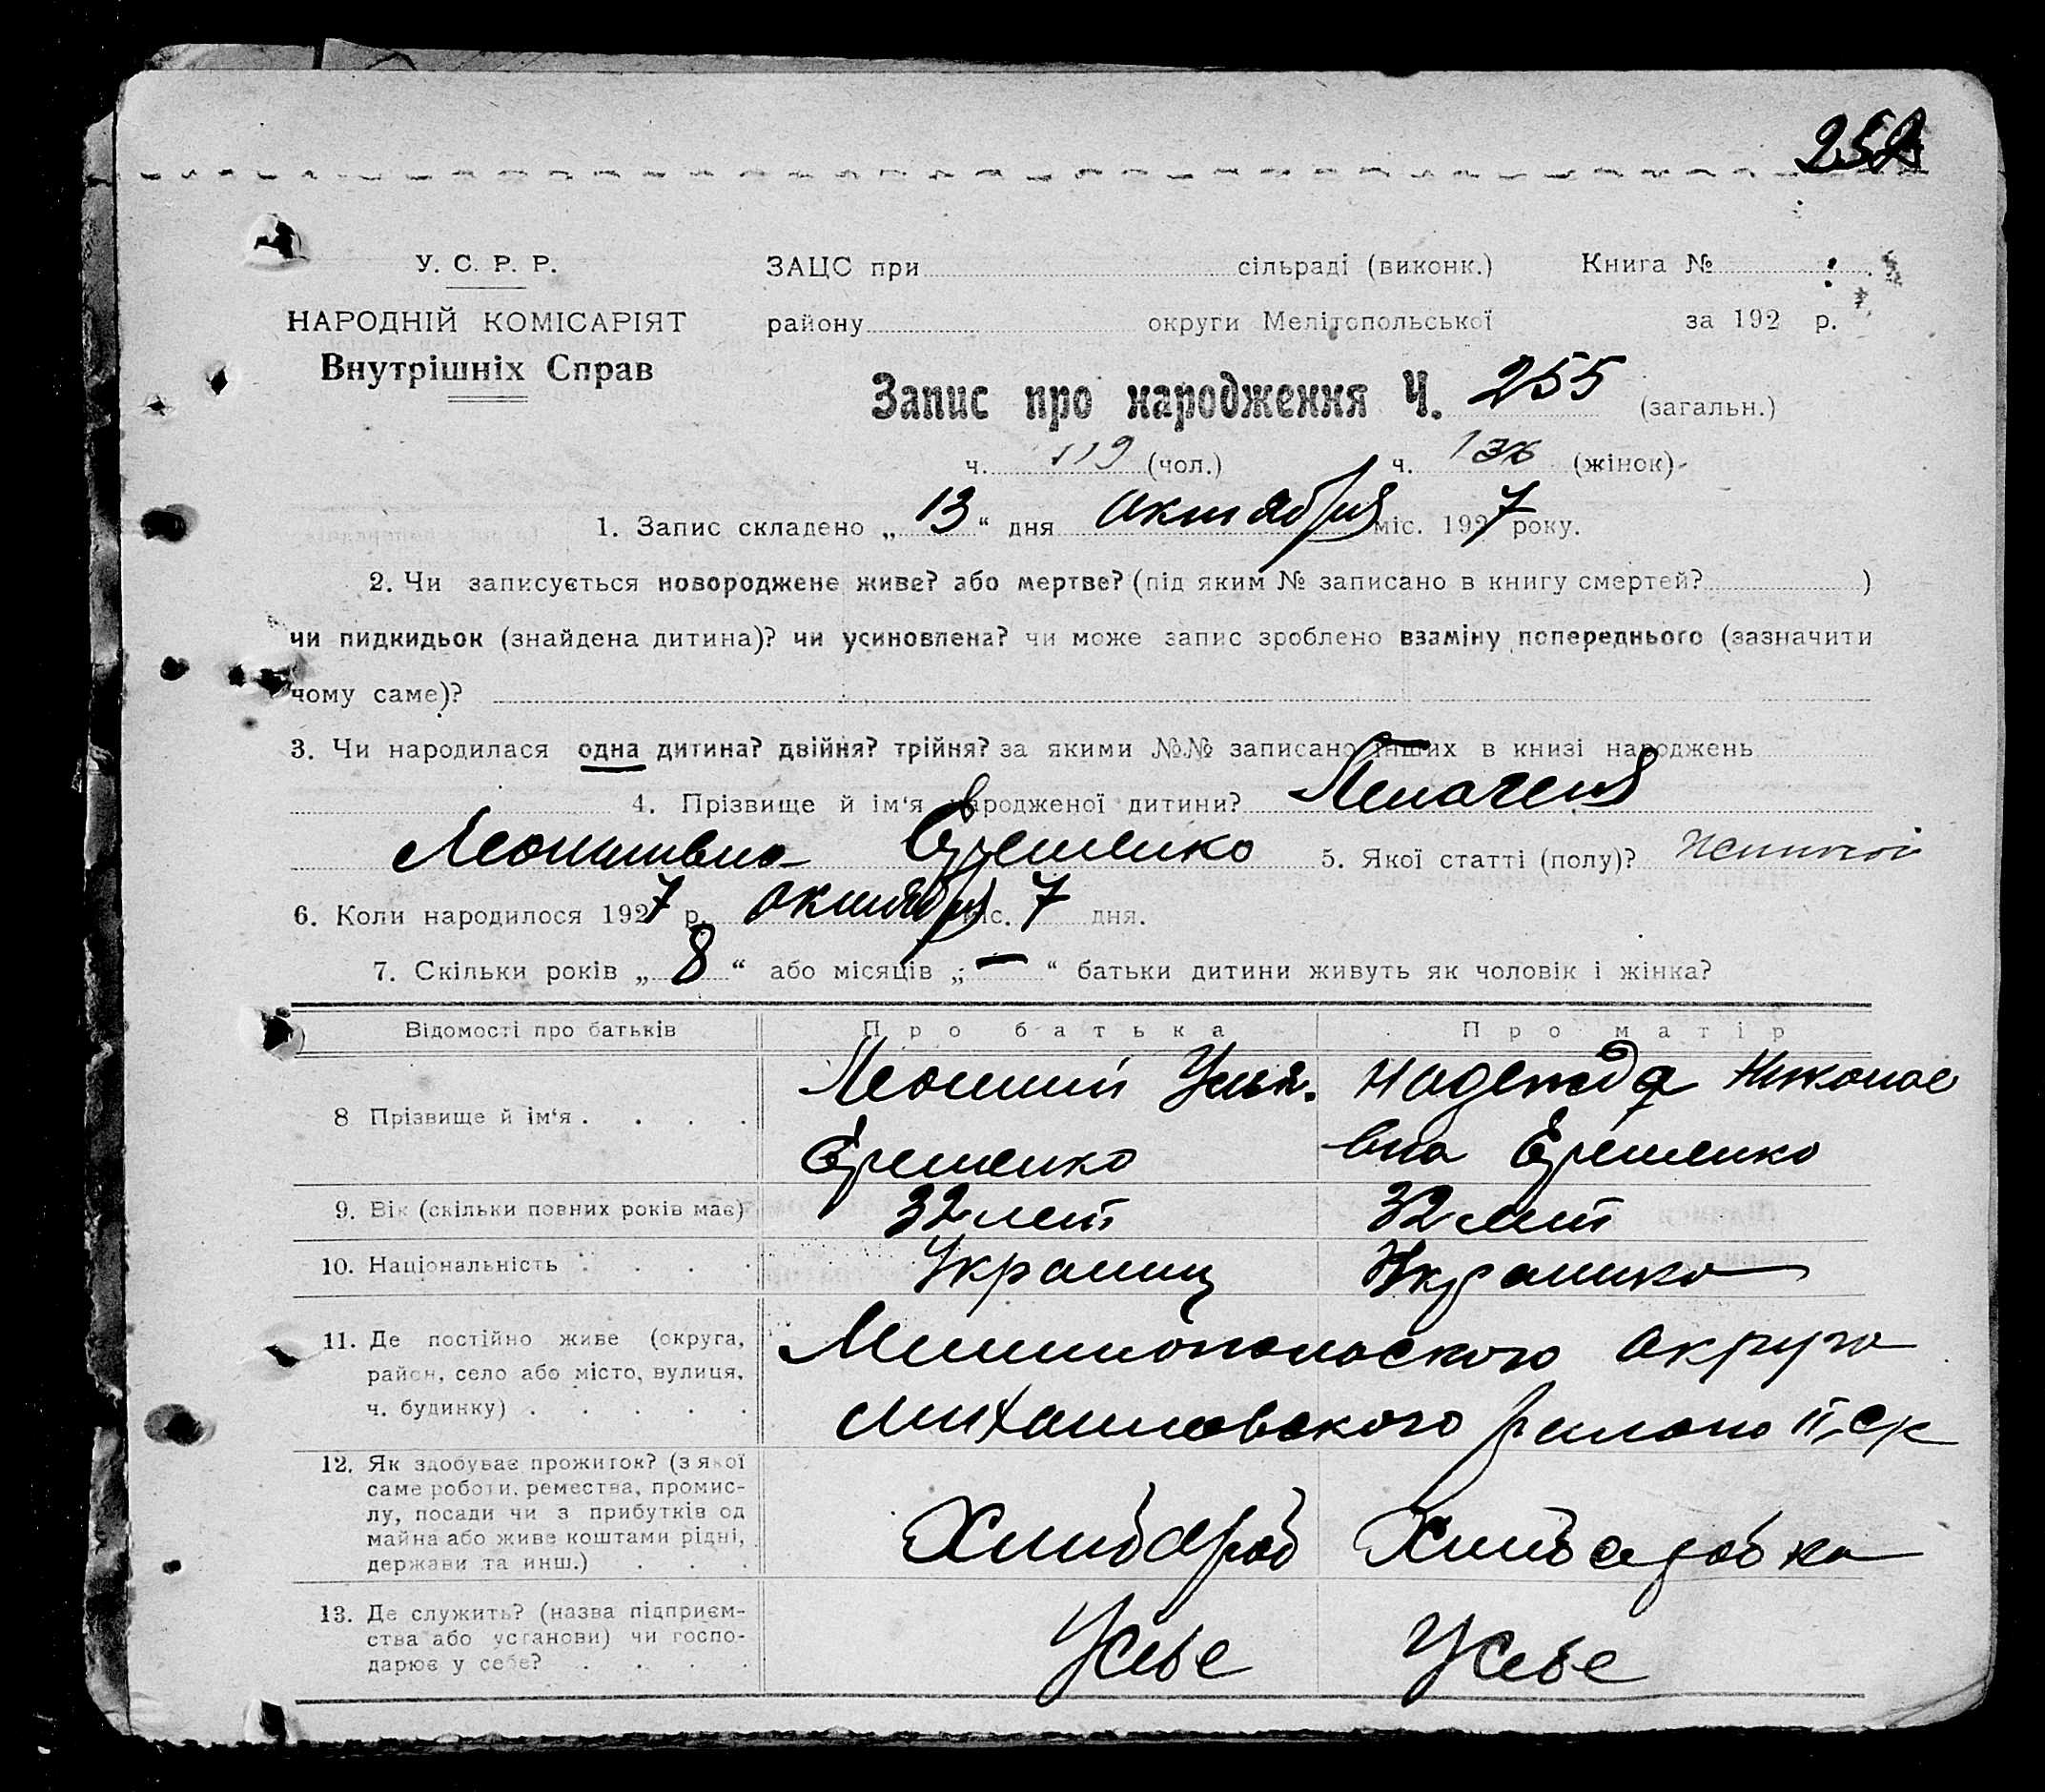 252
У. С. Р. Р.
НАРОДНІЙ КОМІСАРІЯТ
Внутрішніх Справ
ЗАЦС при сільраді (виконк.) Книга №
району округи Мелітопольської за 192 р.
Запис про народження Ч. 255 (загальн.)
ч. 119 (чол.) ч. 136 (жінок)
1. Запис складено „13“ дня октября міс. 1927 року.
2. Чи записується новороджене живе? або мертве? (під яким № записано в книгу смертей? )
чи пидкидьок (знайдена дитина)? чи усиновлена? чи може запис зроблено взаміну попереднього (зазначити
чому саме)?
3. Чи народилася одна дитина? двійня? трійня? за якими №№ записано інших в книзі народжень —
4. Прізвище й ім'я народженої дитини? Пелагея
Леонтивна Ерешенко 5. Якої статті (полу)? женской
6. Коли народилося 1927 р. октября міс. 7 дня.
7. Скільки років „8“ або місяців „—“ батьки дитини живуть як чоловік і жінка?
Відомості про батьків Про батька Про матір
8 Прізвище й ім'я . . . . Леонтий Ерешенко Надежда Николаевна Ерешенко
9. Вік (скільки повних років має) 32 лет 32 лет
10. Національність . . . . Украинц Украинка
11. Де постійно живе (округа,
район, село або місто, вулиця,
ч. будинку) . . . . .
Мелитопольского округа
Михайловского района
12. Як здобуває прожиток? (з якої
саме роботи, ремества, промис-
лу, посади чи з прибутків од
майна або живе коштами рідні,
держави та инш.) . . .
Хлибороб Хлибаробка
13. Де служить? (назва підприєм-
ства або установи) чи госпо-
дарює у себе? . . . .
У себе У себе